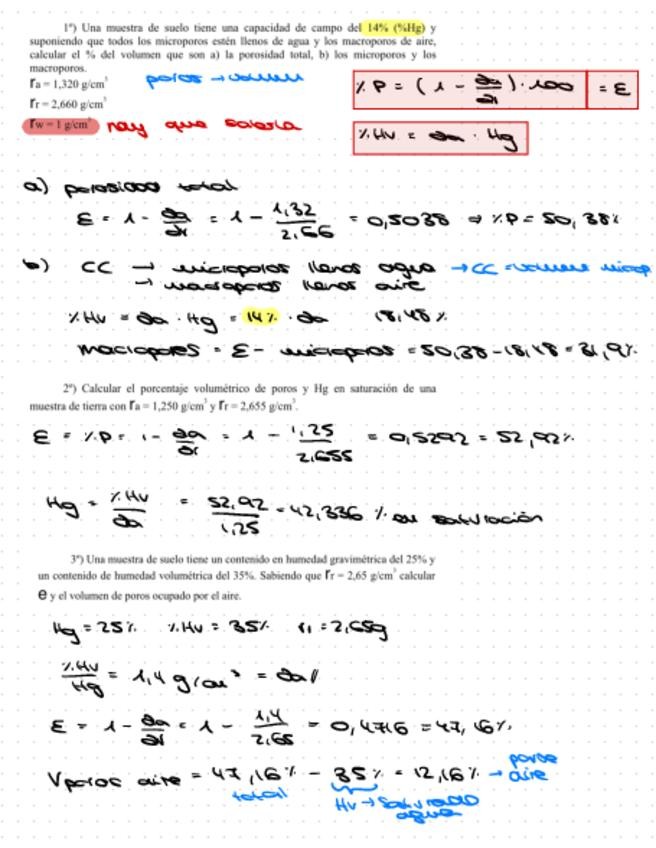 1º) Una muestra de suelo tiene una capacidad de campo del 14% (%Hg) y
suponiendo que todos los microporos estén llenos de agua y los macroporos de aire,
calcular el % del volumen que son a) la porosidad total, b) los microporos y los
macroporos.
Γa = 1,320 g/cm³ poros → volumen
Γr = 2,660 g/cm³
% P = (1 - da/dr) · 100 = ε
Γw = 1 g/cm³ hay que saberla
% Hv = da · Hg
a) porosidad total
ε = 1 - da/dr = 1 - 1,32/2,66 = 0,5038 ⇒ % P = 50,38%
b) CC → microporos llenos agua → CC = volumen microp
→ macroporos llenos aire
% Hv = da · Hg = 14% · da 18,48%
macroporos = ε - microporos = 50,38 - 18,48 = 31,9%
2º) Calcular el porcentaje volumétrico de poros y Hg en saturación de una
muestra de tierra con Γa = 1,250 g/cm³ y Γr = 2,655 g/cm³.
ε = % P = 1 - da/dr = 1 - 1,25/2,655 = 0,5292 = 52,92%
Hg = % Hv/da = 52,92/1,25 = 42,336 % en saturación
3º) Una muestra de suelo tiene un contenido en humedad gravimétrica del 25% y
un contenido de humedad volumétrica del 35%. Sabiendo que Γr = 2,65 g/cm³ calcular
e y el volumen de poros ocupado por el aire.
Hg = 25% % Hv = 35% r1 = 2,65g
% Hv/Hg = 1,4 g/cm³ = da
ε = 1 - da/dr = 1 - 1,4/2,65 = 0,4716 = 47,16%
V poros aire = 47,16% - 35% = 12,16% → poros aire
total Hv → saturado
agua